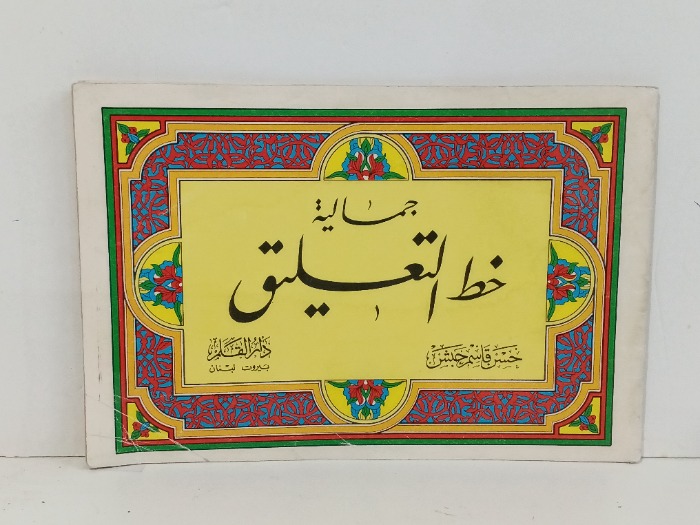 جمالية
خط التعليق
حسن قاسم حبش
دار القلم
بيروت لبنان